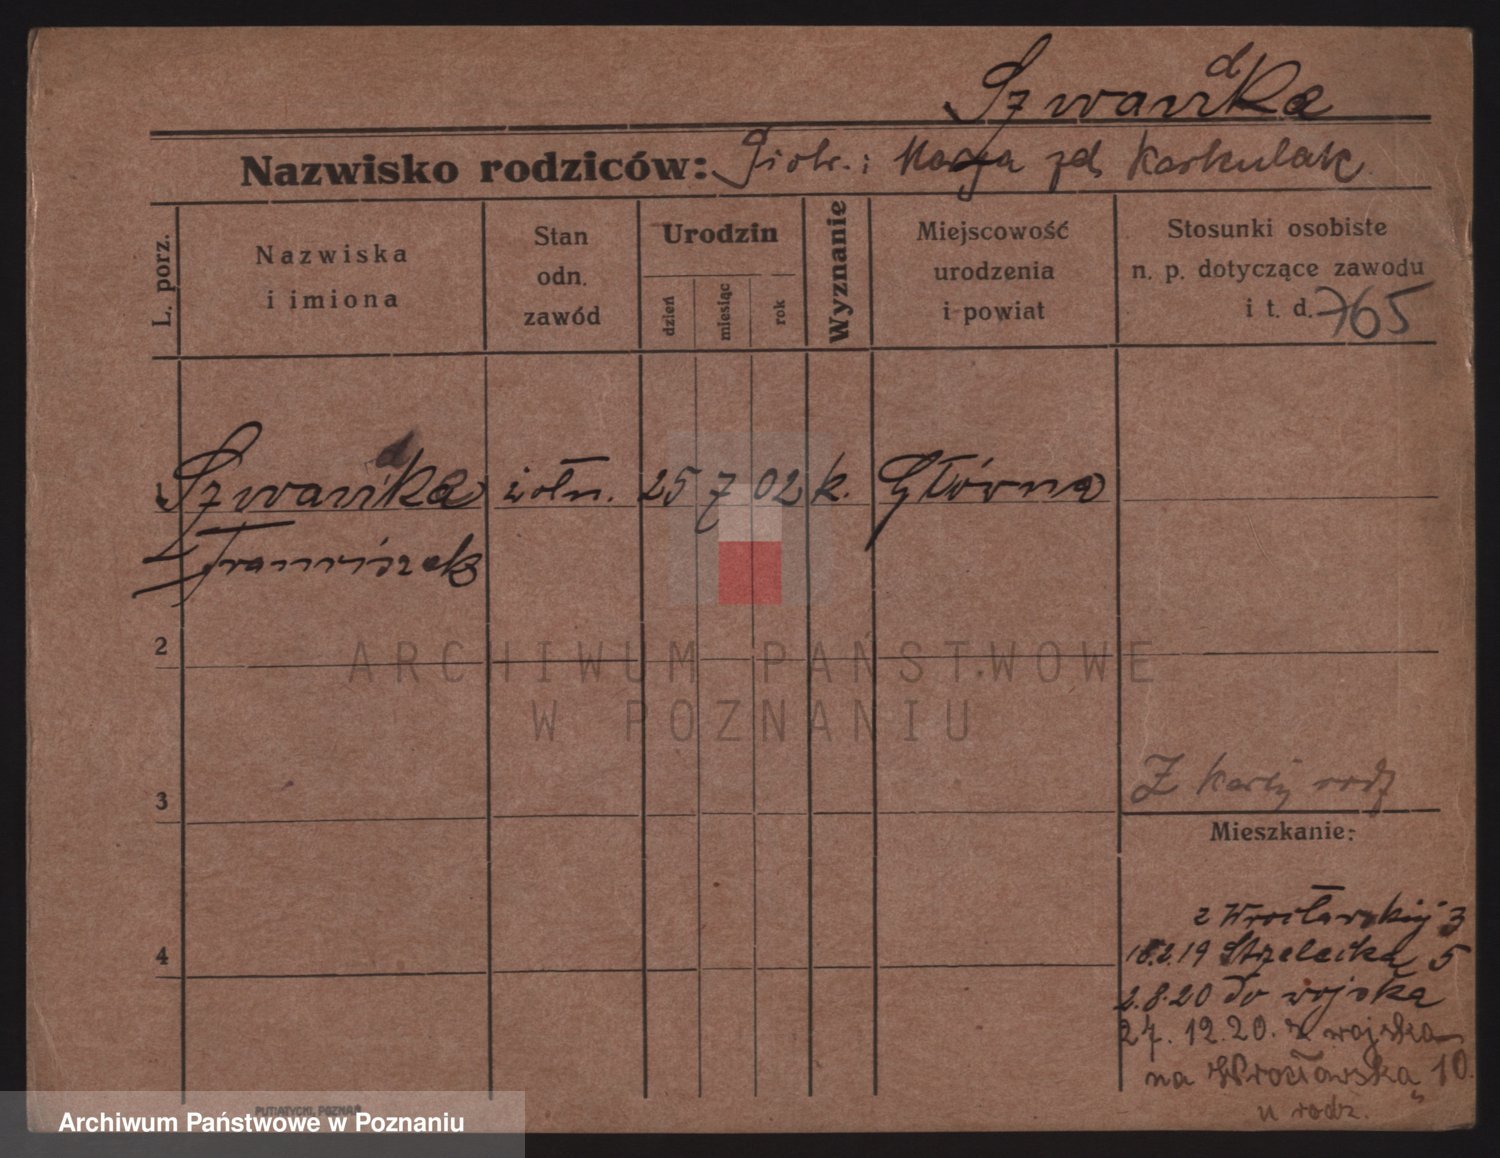 Szwandka
Nazwisko rodziców: Piotr i Marja zd Kaskulak
L. porz.
Nazwiska
i imiona
Stan
odn.
zawód
Urodzin
dzień
miesiąc
rok
Wyznanie
Miejscowość
urodzenia
i powiat
Stosunki osobiste
n. p. dotyczące zawodu
i t. d. 765
Szwandka żołn. 25 7 02 k. Główna
Franciszek
2
3
Z karty rodz
Mieszkanie:
z Wrocławskiej 3
4
18.2.19 Strzelecka 5
2.8.20 do wojska
27.12.20. z wojska
na Wrocławską 10.
u rodz.
PUTIATYCKI, POZNAŃ
ARCHIWUM PAŃSTWOWE
W POZNANIU
Archiwum Państwowe w Poznaniu